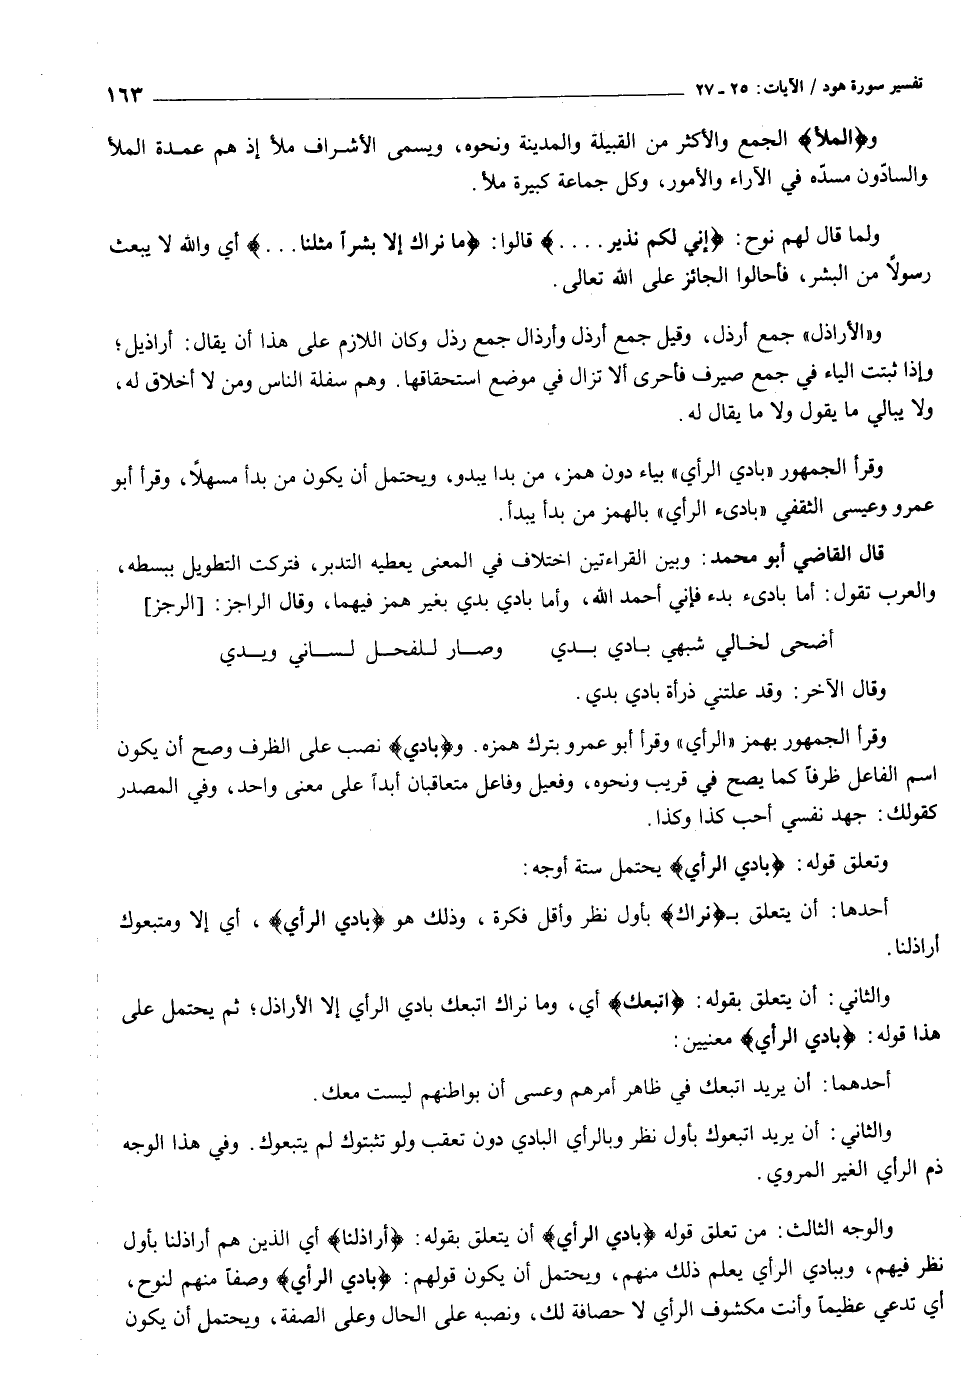 تفسير سورة هود / الآيات: ٢٥ ـ ٢٧ ١٦٣
و﴿الملأ﴾ الجمع والأكثر من القبيلة والمدينة ونحوه، ويسمى الأشراف ملأ إذ هم عمدة الملأ
والسادّون مسدّه في الآراء والأمور، وكل جماعة كبيرة ملأ.
ولما قال لهم نوح: ﴿إني لكم نذير . . . .﴾ قالوا: ﴿ما نراك إلا بشراً مثلنا . . .﴾ أي والله لا يبعث
رسولاً من البشر، فأحالوا الجائز على الله تعالى.
و«الأراذل» جمع أرذل، وقيل جمع أرذل وأرذال جمع رذل وكان اللازم على هذا أن يقال: أراذيل؛
وإذا ثبتت الياء في جمع صيرف فأحرى ألا تزال في موضع استحقاقها. وهم سفلة الناس ومن لا أخلاق له،
ولا يبالي ما يقول ولا ما يقال له.
وقرأ الجمهور «بادي الرأي» بياء دون همز، من بدا يبدو، ويحتمل أن يكون من بدأ مسهلاً، وقرأ أبو
عمرو وعيسى الثقفي «بادىء الرأي» بالهمز من بدأ يبدأ.
قال القاضي أبو محمد: وبين القراءتين اختلاف في المعنى يعطيه التدبر، فتركت التطويل ببسطه،
والعرب تقول: أما بادىء بدء فإني أحمد الله، وأما بادي بدي بغير همز فيهما، وقال الراجز: [الرجز]
أضحى لخالي شبهي بادي بدي وصار للفحل لساني ويدي
وقال الآخر: وقد علتني ذرأة بادي بدي.
وقرأ الجمهور بهمز «الرأي» وقرأ أبو عمرو بترك همزه. و﴿بادي﴾ نصب على الظرف وصح أن يكون
اسم الفاعل ظرفاً كما يصح في قريب ونحوه، وفعيل وفاعل متعاقبان أبداً على معنى واحد، وفي المصدر
كقولك: جهد نفسي أحب كذا وكذا.
وتعلق قوله: ﴿بادي الرأي﴾ يحتمل ستة أوجه:
أحدها: أن يتعلق بـ﴿نراك﴾ بأول نظر وأقل فكرة ، وذلك هو ﴿بادي الرأي﴾ ، أي إلا ومتبعوك
أراذلنا.
والثاني: أن يتعلق بقوله: ﴿اتبعك﴾ أي، وما نراك اتبعك بادي الرأي إلا الأراذل؛ ثم يحتمل على
هذا قوله: ﴿بادي الرأي﴾ معنيين:
أحدهما: أن يريد اتبعك في ظاهر أمرهم وعسى أن بواطنهم ليست معك.
والثاني: أن يريد اتبعوك بأول نظر وبالرأي البادي دون تعقب ولو تثبتوك لم يتبعوك. وفي هذا الوجه
ذم الرأي الغير المروي.
والوجه الثالث: من تعلق قوله ﴿بادي الرأي﴾ أن يتعلق بقوله: ﴿أراذلنا﴾ أي الذين هم أراذلنا بأول
نظر فيهم، وببادي الرأي يعلم ذلك منهم، ويحتمل أن يكون قولهم: ﴿بادي الرأي﴾ وصفاً منهم لنوح،
أي تدعي عظيماً وأنت مكشوف الرأي لا حصافة لك، ونصبه على الحال وعلى الصفة، ويحتمل أن يكون